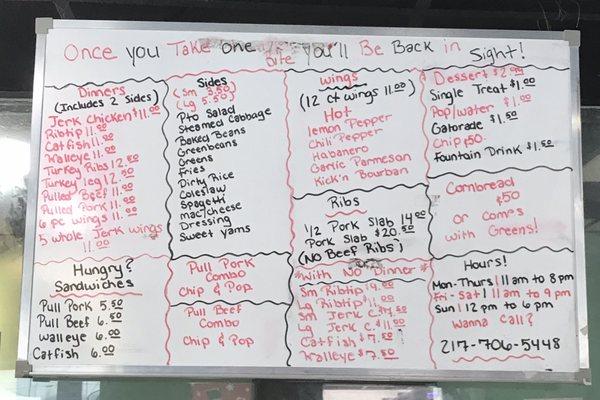 Once you Take one Bite you'll Be Back in Sight!
Dinners
(Includes 2 Sides)
Jerk Chicken $11.00
Ribtip 11.00
Catfish 11.00
Walleye 11.00
Turkey Ribs 12.50
Turkey leg 12.50
Pulled Beef 11.00
Pulled Pork 11.00
6 pc wings 11.00
5 whole Jerk wings
11.00
Hungry?
Sandwiches
Pull Pork 5.50
Pull Beef 6.50
walleye 6.00
Catfish 6.00
Sides
(Sm 3.50)
(Lg 5.50)
Pto Salad
Steamed Cabbage
Baked Beans
Greenbeans
Greens
Fries
Dirty Rice
Coleslaw
Spagetti
mac/cheese
Dressing
Sweet yams
Pull Pork
Combo
Chip & Pop
Pull Beef
Combo
Chip & Pop
wings
(12 ct wings 11.00)
Hot
lemon Pepper
Chili Pepper
Habanero
Garlic Parmeson
Kick'n Bourban
Ribs
1/2 Pork Slab 14.00
Pork Slab $20.50
(No Beef Ribs)
*With No Dinner*
Sm Ribtip $9.00
Lg Ribtip $11.00
Sm Jerk C $7.50
Lg Jerk C $11.00
Catfish $7.50
Walleye $7.50
Dessert $2.00
Single Treat $1.00
Pop/water $1.00
Gatorade $1.50
Chip $.50
Fountain Drink $1.50
Cornbread
$.50
or Comes
with Greens!
Hours!
Mon-Thurs | 11 am to 8 pm
Fri-Sat | 11 am to 9 pm
Sun | 12 pm to 6 pm
Wanna Call?
217-706-5448